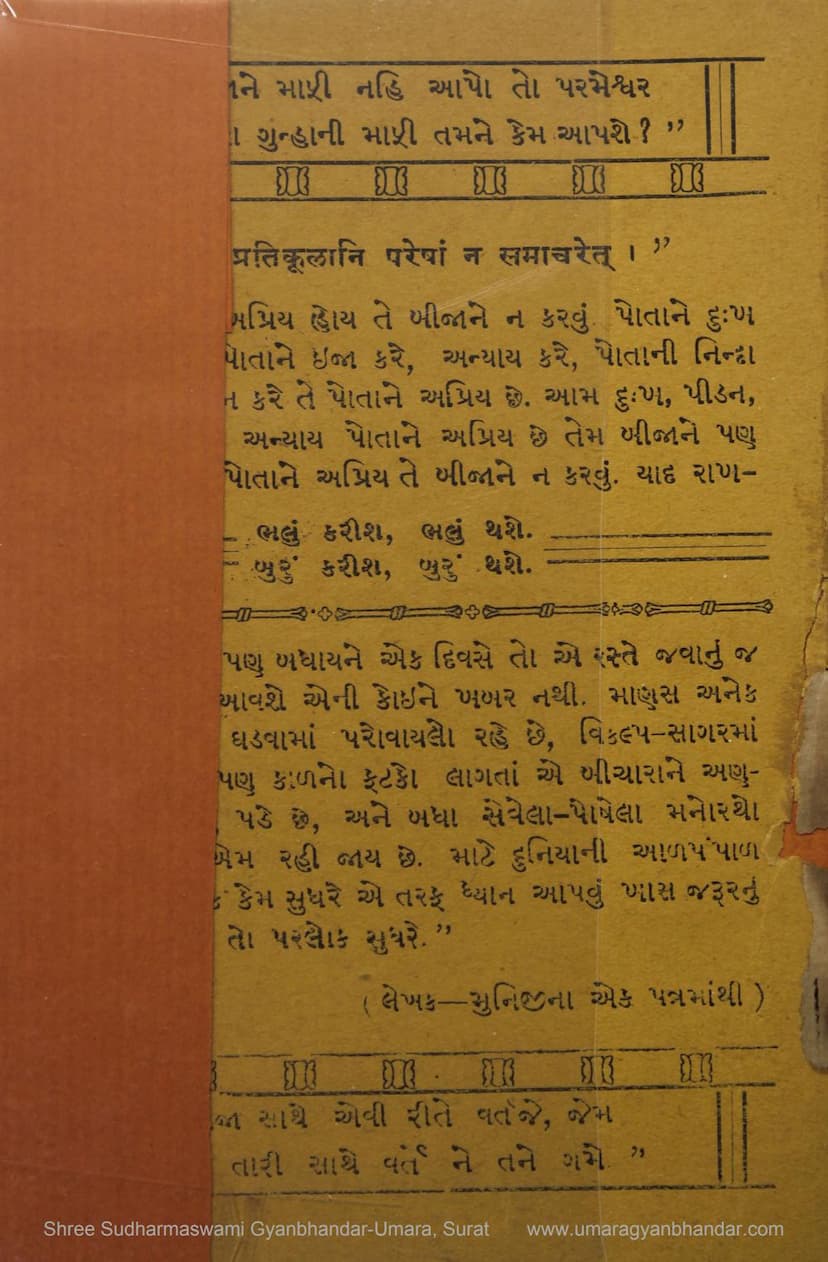 માફી નહિ આપો તો પરમેશ્વર
ગુન્હાની માફી તમને કેમ આપશે? ”
प्रतिकूलानि परेषां न समाचरेत् । ”
હોય તે બીજાને ન કરવું. પોતાને દુઃખ
પોતાને ઇજા કરે, અન્યાય કરે, પોતાની નિન્દા
ન કરે તે પોતાને અપ્રિય છે. આમ દુઃખ, પીડન,
અન્યાય પોતાને અપ્રિય છે તેમ બીજાને પણ
પોતાને અપ્રિય તે બીજાને ન કરવું. યાદ રાખ–
ભલું કરીશ, ભલું થશે.
બુરું કરીશ, બુરું થશે.
પણ બધાયને એક દિવસે તો એ રસ્તે જવાનું જ
આવશે એની કોઇને ખબર નથી. માણસ અનેક
ઘડવામાં પરોવાયલો રહે છે, વિકલ્પ–સાગરમાં
પણ કાળનો ફટકો લાગતાં એ બીચારાને અણ-
પડે છે, અને બધા સેવેલા–પોષેલા મનોરથો
એમ રહી જાય છે. માટે દુનિયાની આળપંપાળ
કેમ સુધરે એ તરફ ધ્યાન આપવું ખાસ જરૂરનું
તો પરલોક સુધરે. ”
( લેખક—મુનિજીના એક પત્રમાંથી )
સાથે એવી રીતે વર્તજે, જેમ
તારી સાથે વર્તે ને તને ગમે ”
Shree Sudharmaswami Gyanbhandar-Umara, Surat www.umaragyanbhandar.com